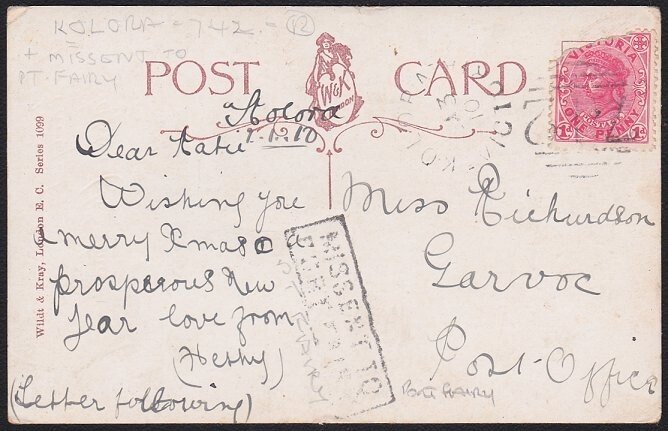 KOLORA - 742 - R2
+ MISSENT TO
PT. FAIRY
POST CARD
W&K
LONDON
VICTORIA
ONE PENNY
1d 1d
KOLORA
Kolora
1.1.10
Dear Katie
Wishing you
a merry Xmas & a
prosperous New
Year love from
(Hethy)
(Letter following)
Miss Richardson
Garvoc
Post Office
MISSENT TO
PORT FAIRY
PORT FAIRY
Wildt & Kray, London E. C. Series 1099